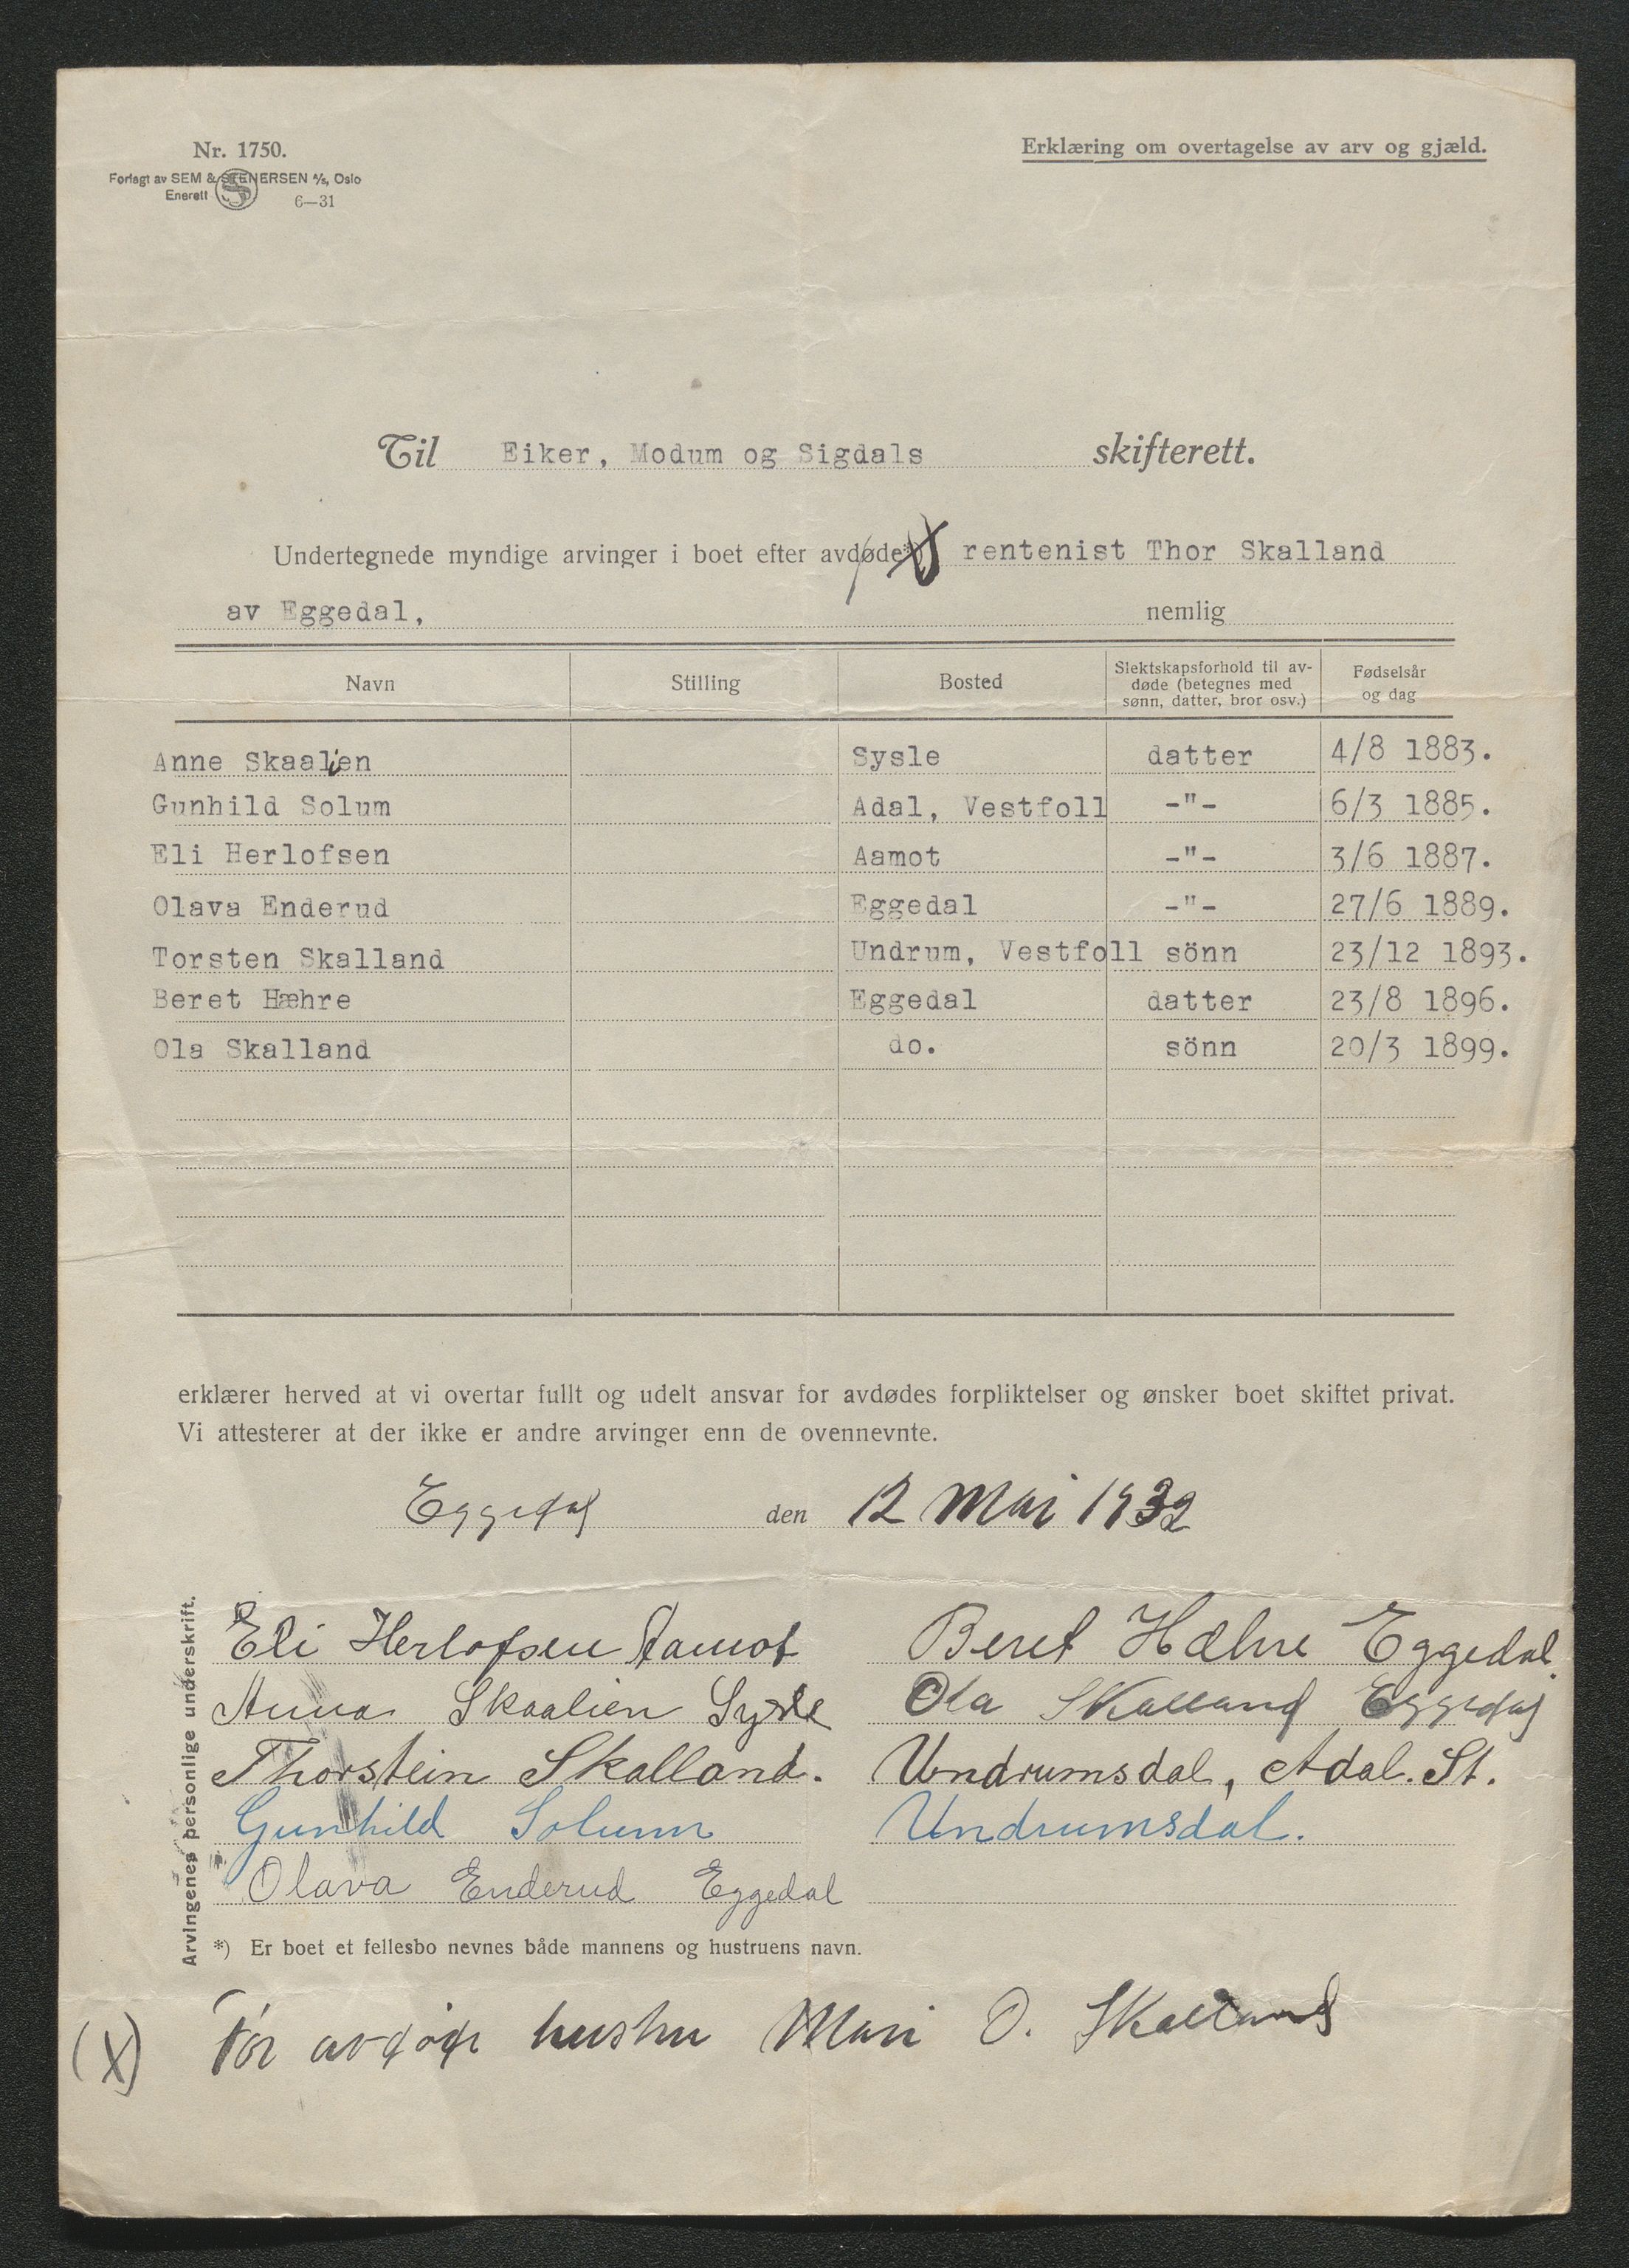 Nr. 1750.
Erklæring om overtagelse av arv og gjæld.
Forlagt av SEM & STENERSEN A/s, Oslo
Enerett 6—31
Til Eiker, Modum og Sigdals skifterett.
Undertegnede myndige arvinger i boet efter avdøde*) rentenist Thor Skalland
av Eggedal, nemlig
Navn Stilling Bosted Slektskapsforhold til avdøde (betegnes med sønn, datter, bror osv.) Fødselsår og dag
Anne Skaalien Sysle datter 4/8 1883.
Gunhild Solum Adal, Vestfoll -"- 6/3 1885.
Eli Herlofsen Aamot -"- 3/6 1887.
Olava Enderud Eggedal -"- 27/6 1889.
Torsten Skalland Undrum, Vestfoll sönn 23/12 1893.
Beret Hæhre Eggedal datter 23/8 1896.
Ola Skalland do. sönn 20/3 1899.
erklærer herved at vi overtar fullt og udelt ansvar for avdødes forpliktelser og ønsker boet skiftet privat.
Vi attesterer at der ikke er andre arvinger enn de ovennevnte.
Eggedal den 12 Mai 1932
Arvingenes personlige underskrift.
Eli Herlofsen Aamot Beret Hæhre Eggedal.
Anna Skaalien Sysle Ola Skalland Eggedal
Thorstein Skalland. Undrumsdal, Adal. St.
Gunhild Solum Undrumsdal.
Olava Enderud Eggedal
*) Er boet et fellesbo nevnes både mannens og hustruens navn.
(X) før avdøde hustru Mari O. Skalland